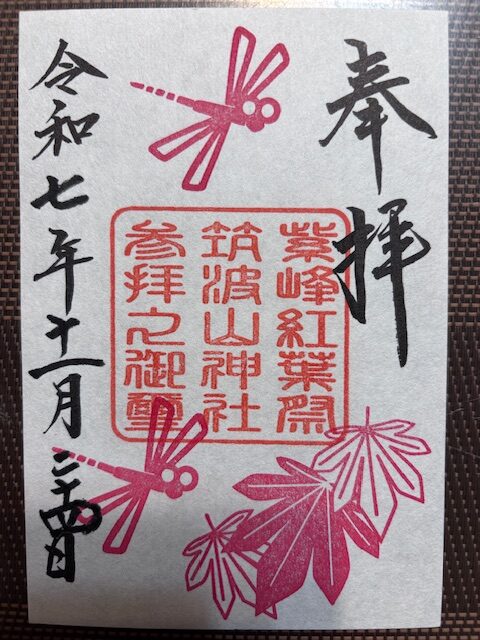 奉拝
紫峰紅葉祭
筑波山神社
参拝之御璽
令和七年十一月二十四日